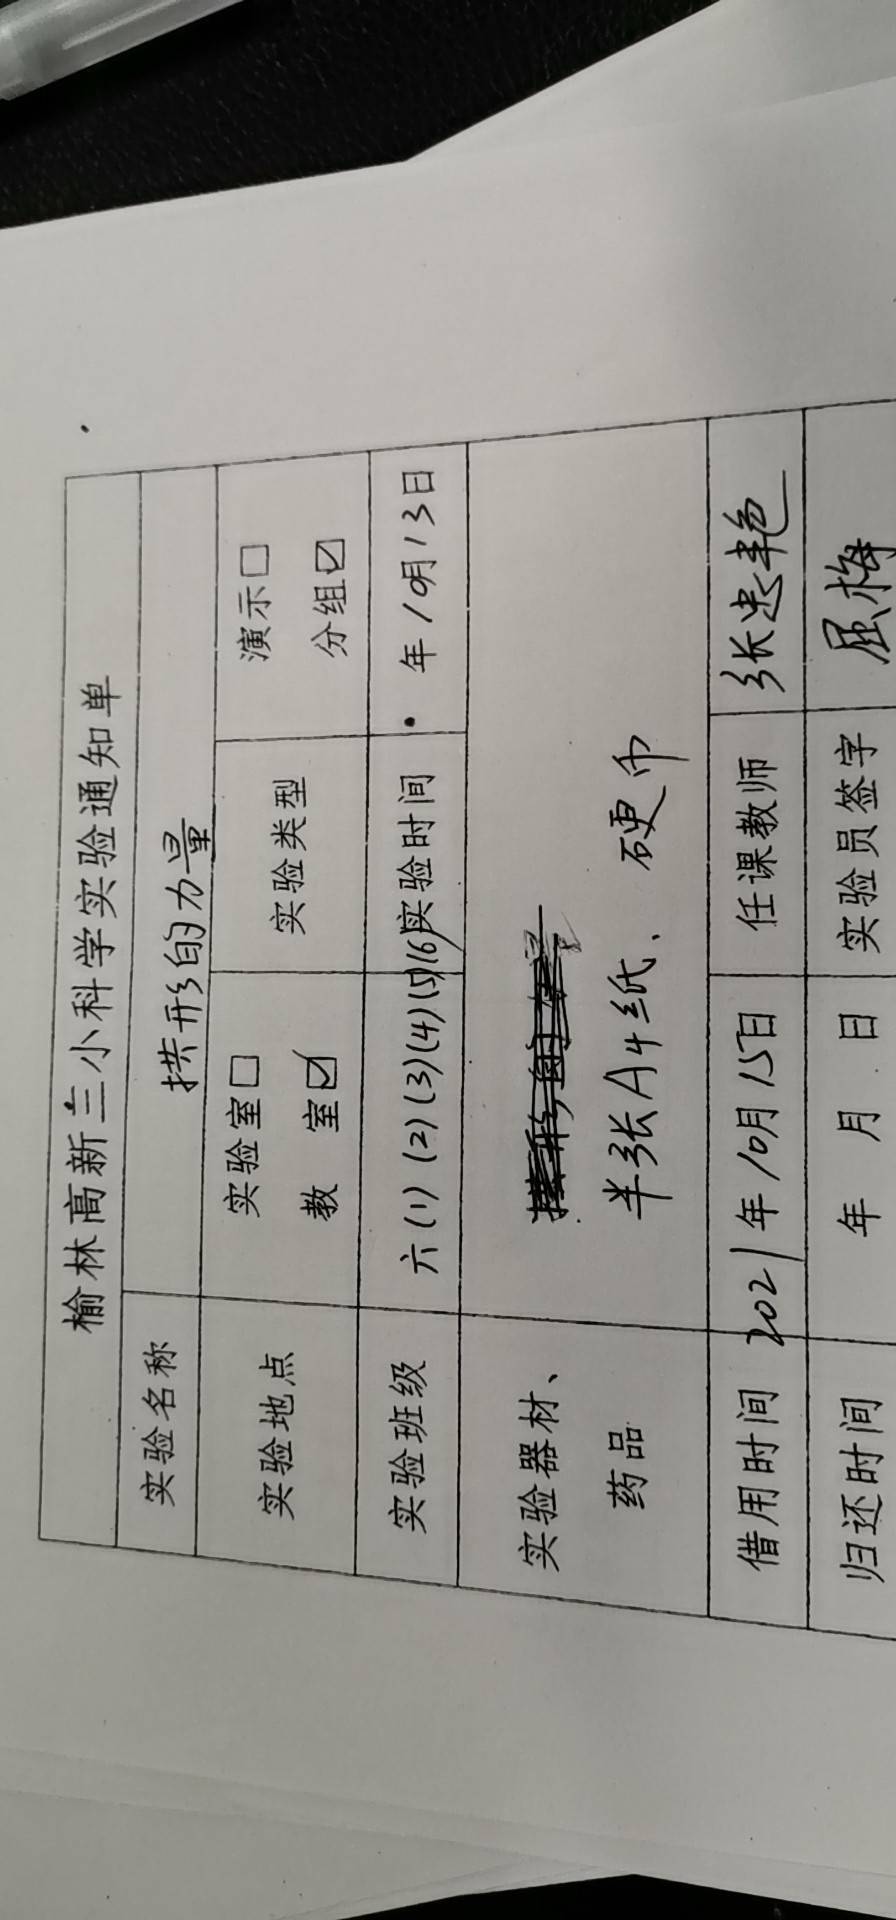 榆林高新三小科学实验通知单
实验名称 拱形的力量
实验地点 实验室□ 教 室☑ 实验类型 演示□ 分组☑
实验班级 六(1)(2)(3)(4)(5)(6) 实验时间 年10月13日
实验器材、
药品 半张A4纸、硬币
借用时间 2021年10月15日 任课教师 张忠艳
归还时间 年 月 日 实验员签字 屈梅